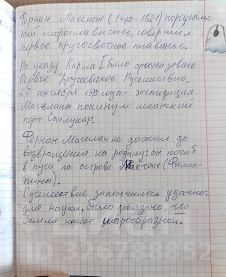 Фернан Магеллан (1480-1521) португаль-
ский мореплаватель, совершил
первое кругосветное плавание.
По указу Карла I было организовано
первое кругосветное путешествие,
20 сентября 1519 года - экспедиция
Магеллана покинула испанский
порт Санлукар.
Фернан Магеллан не дожил до
возвращения на родину: он погиб
в пути на острове Мактан (Филип-
пины).
Путешествие закончилось удачно:
для науки было доказано, что
Земля имеет шарообразной